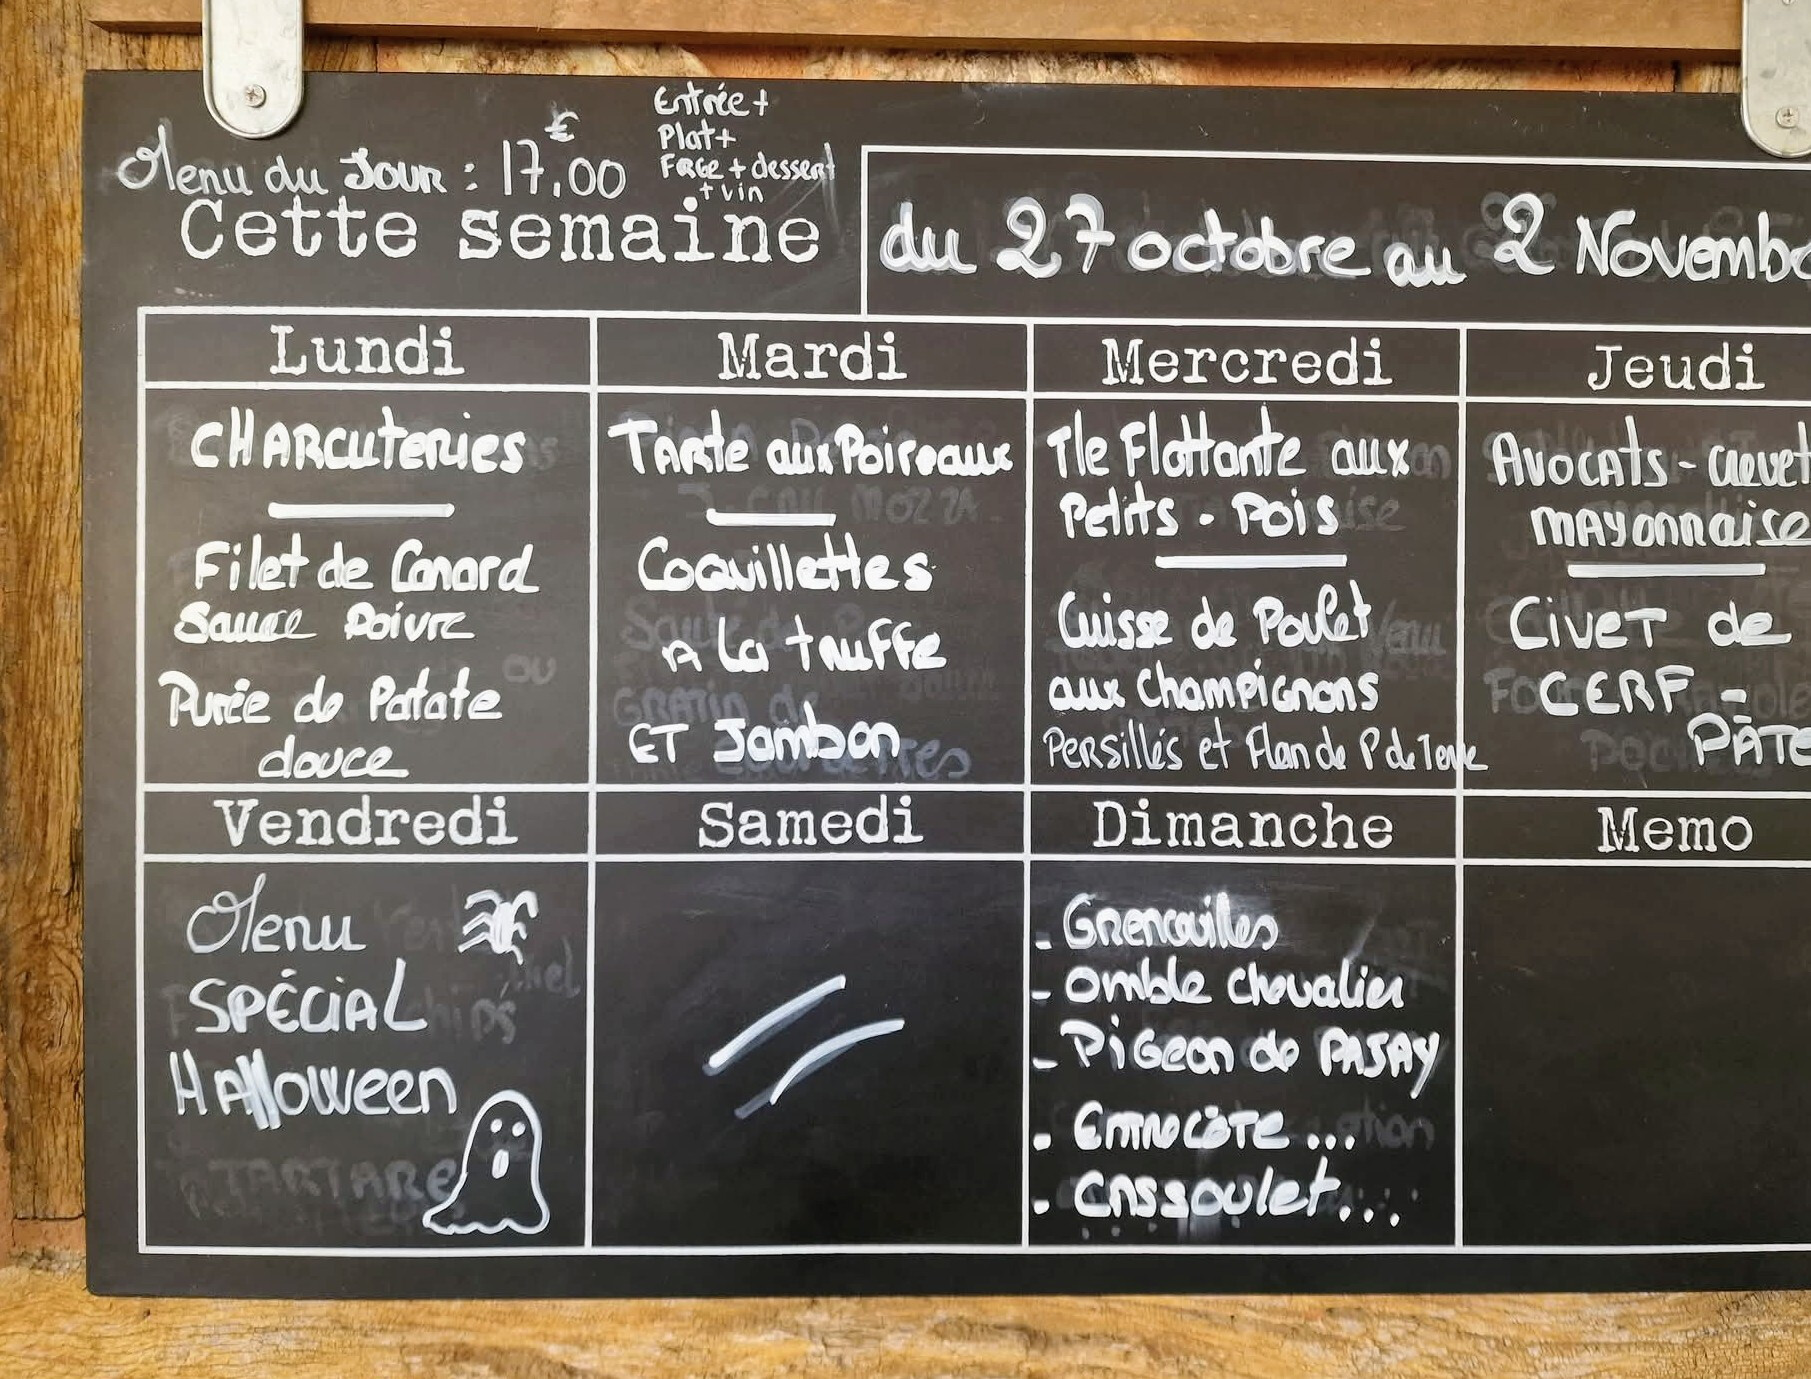 Menu du Jour : 17,00 €
Entrée +
Plat +
Frge + dessert
+ vin
Cette semaine
du 27 octobre au 2 Novemb
Lundi
CHARCUTERIES
Filet de Canard
Sauce Poivre
Purée de Patate
douce
Mardi
TARTE aux Poireaux
COQUILLETTES
A La truffe
ET Jambon
Mercredi
Ile Flottante aux
Petits - Pois
Cuisse de Poulet
aux Champignons
PERSILLÉS et Flan de P de Terre
Jeudi
AVOCATS - crevet
MAYONNAISE
CIVET de
CERF -
PÂTE
Vendredi
Menu
SPÉCIAL
HALLOWEEN
Samedi
Dimanche
- Grenouilles
- Omble chevalier
- PIGEON de PAJAY
- ENTRECÔTE ...
- CASSOULET ...
Memo